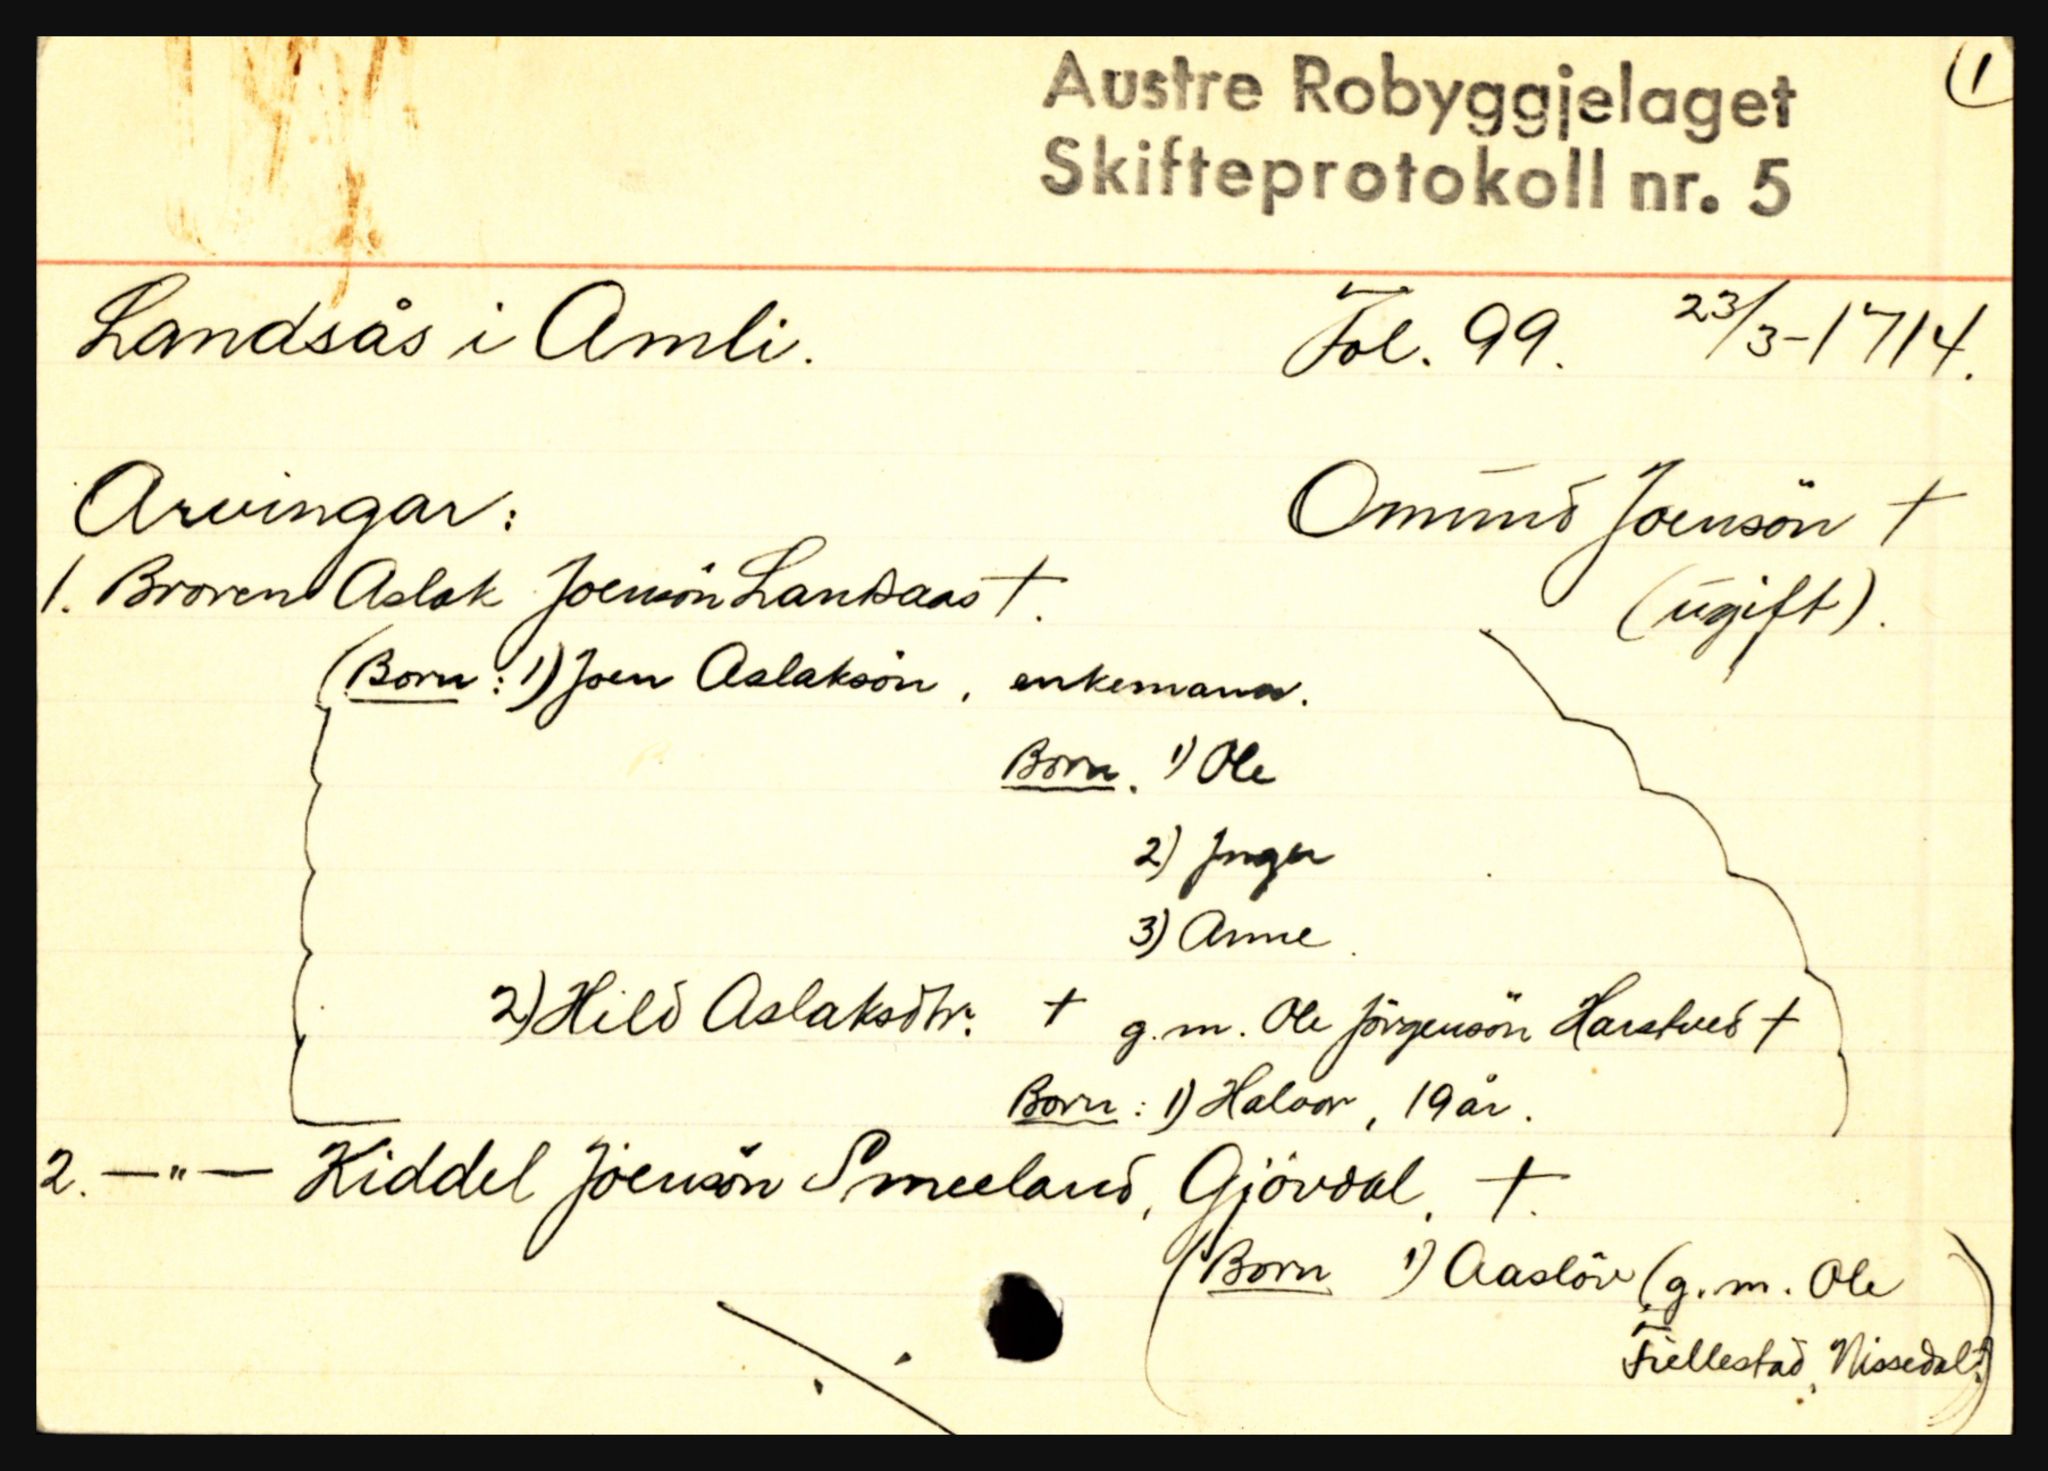 Austre Robyggjelaget
Skifteprotokoll nr. 5
(1
Landsås i Amli. Fol. 99. 23/3-1714.
Arvingar: Omund Joensön †
(ugift).
1. Broren Aslak Joensön Landsaas †.
(Born: 1) Joen Aslaksön, enkemann.
Born. 1) Ole
2) Inger
3) Anne.
2) Hild Aslaksdtr: † g.m. Ole Jörgensön Harstved †
Born: 1) Halvor, 19 år.
2. —"— Kiddel Joensön Smeeland, Gjövdal. †.
(Born 1) Aaslöv (g.m. Ole
Fiellestad, Nissedal.)